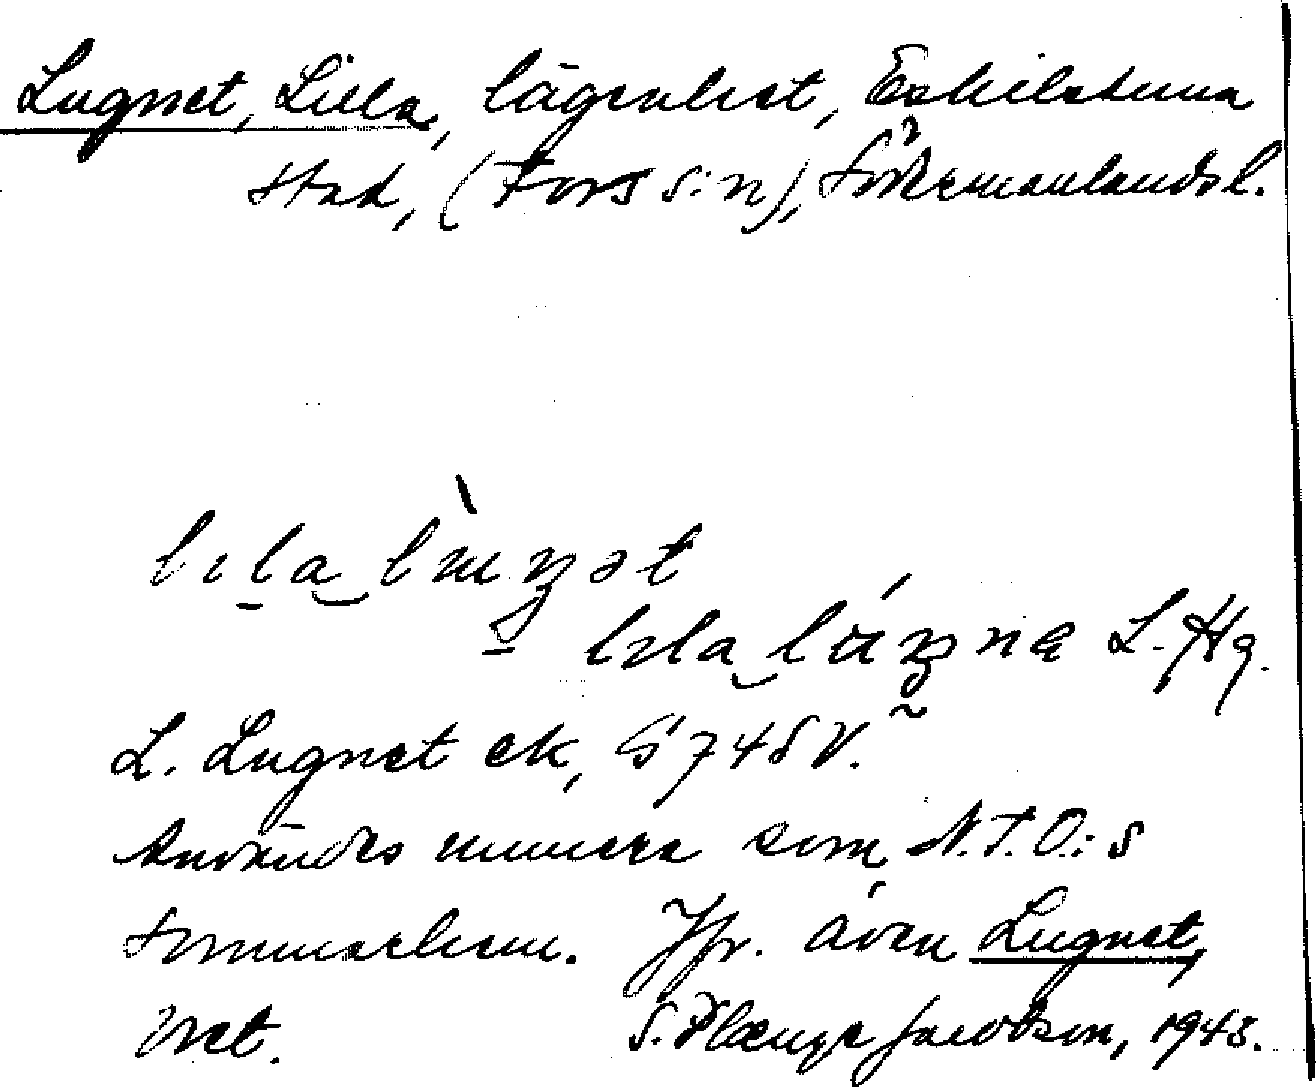 Lugnet, Lilla, lägenhet, Eskilstuna
stad, (Fors s:n), Södermanlands l.
L. Hg.
L. Lugnet ek, G 748 V.
Användes numera som N.T.O.:s
sommarhem. Jfr. även Lugnet,
Vret. S. Jacobson, 1943.